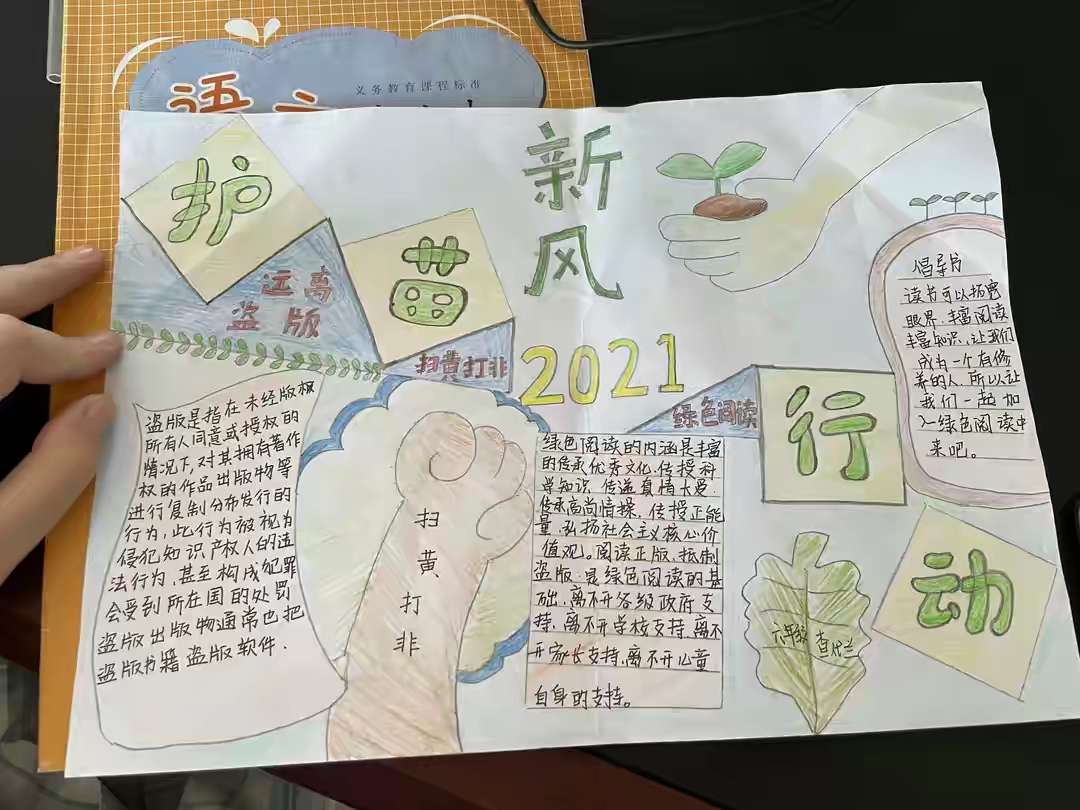 义务教育课程标准
语文
护
苗
新
风
2021
行
动
远离
盗版
扫黄打非
绿色阅读
盗版是指在未经版权
所有人同意或授权的
情况下,对其拥有著作
权的作品出版物等
进行复制分布发行的
行为,此行为被视为
侵犯知识产权人的违
法行为,甚至构成犯罪
会受到所在国的处罚
盗版出版物通常也把
盗版书籍盗版软件.
扫
黄
打
非
绿色阅读的内涵是丰富
的传承优秀文化.传授科
学知识.传递真情大爱.
传承高尚情操、传授正能
量,弘扬社会主义核心价
值观。阅读正版,抵制
盗版.是绿色阅读的基
础.离不开各级政府支
持,离不开学校支持,离不
开家长支持,离不开儿童
自身的支持。
倡导书
读书可以拓宽
眼界.丰富阅读
丰富知识,让我们
成为一个有修
养的人.所以让
我们一起加
入绿色阅读中
来吧。
六年级
查代兰